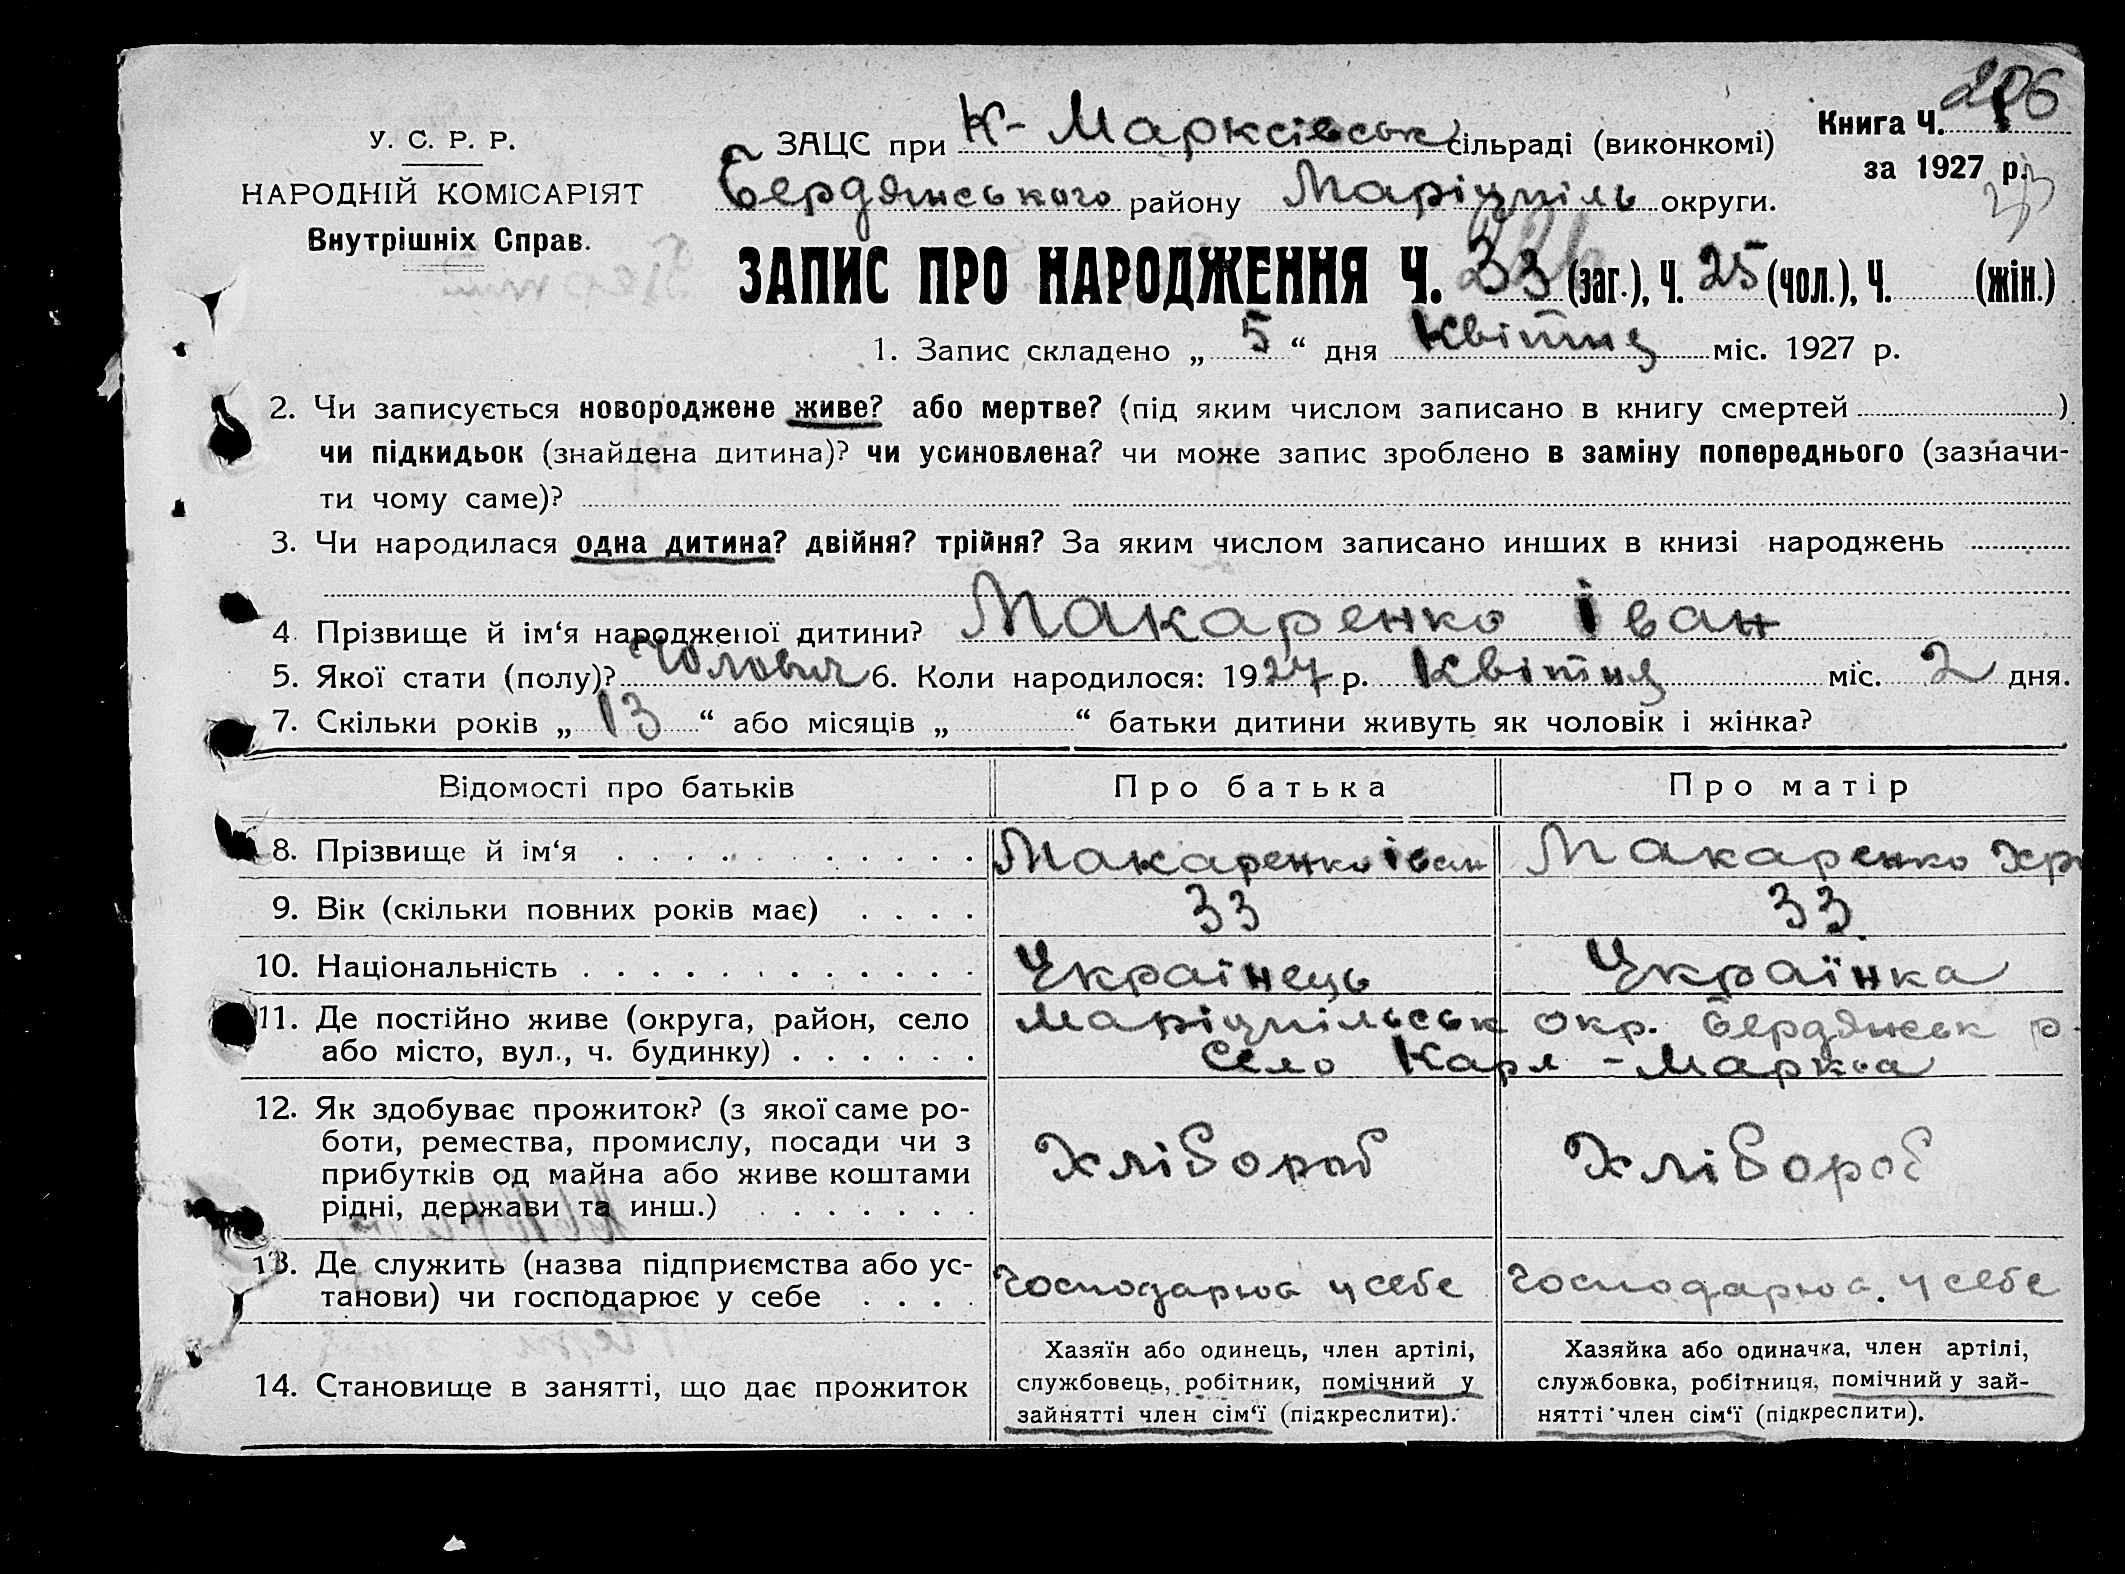 206
У. С. Р. Р.
НАРОДНІЙ КОМІСАРІЯТ
Внутрішніх Справ.
ЗАЦС при К-Марксівськ сільраді (виконкомі)
Книга Ч. 1
за 1927 р.
Бердянського району Маріупіль округи.
ЗАПИС ПРО НАРОДЖЕННЯ Ч. 33 (заг.), Ч. 25 (чол.), Ч. (жін.)
1. Запис складено „ 5 “ дня Квітня міс. 1927 р.
2. Чи записується новороджене живе? або мертве? (під яким числом записано в книгу смертей )
чи підкидьок (знайдена дитина)? чи усиновлена? чи може запис зроблено в заміну попереднього (зазначи-
ти чому саме)?
3. Чи народилася одна дитина? двійня? трійня? За яким числом записано инших в книзі народжень
4. Прізвище й ім‘я народженої дитини? Макаренко Іван
5. Якої стати (полу)? Чоловіч 6. Коли народилося: 1927 р. Квітня міс. 2 дня.
7. Скільки років „ 13 “ або місяців „ “ батьки дитини живуть як чоловік і жінка?
Відомості про батьків Про батька Про матір
8. Прізвище й ім‘я Макаренко Іван Макаренко Хр
9. Вік (скільки повних років має) 33 33
10. Національність Українець Українка
11. Де постійно живе (округа, район, село Маріупільськ окр. Бердянськ р.
або місто, вул., ч. будинку) Село Карл-Маркса
12. Як здобуває прожиток? (з якої саме ро-
боти, ремества, промислу, посади чи з Хлібороб Хлібороб
прибутків од майна або живе коштами
рідні, держави та инш.)
13. Де служить (назва підприємства або ус-
танови) чи господарює у себе господарює у себе господарює у себе
14. Становище в занятті, що дає прожиток
Хазяїн або одинець, член артілі,
службовець, робітник, помічний у
зайнятті член сім‘ї (підкреслити).
Хазяйка або одиначка, член артілі,
службовка, робітниця, помічний у зай-
нятті член сім‘ї (підкреслити).